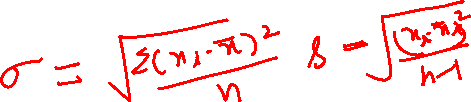 σ = √(Σ(xᵢ - x̄)² / n) s = √((xᵢ - x̄)² / n-1)